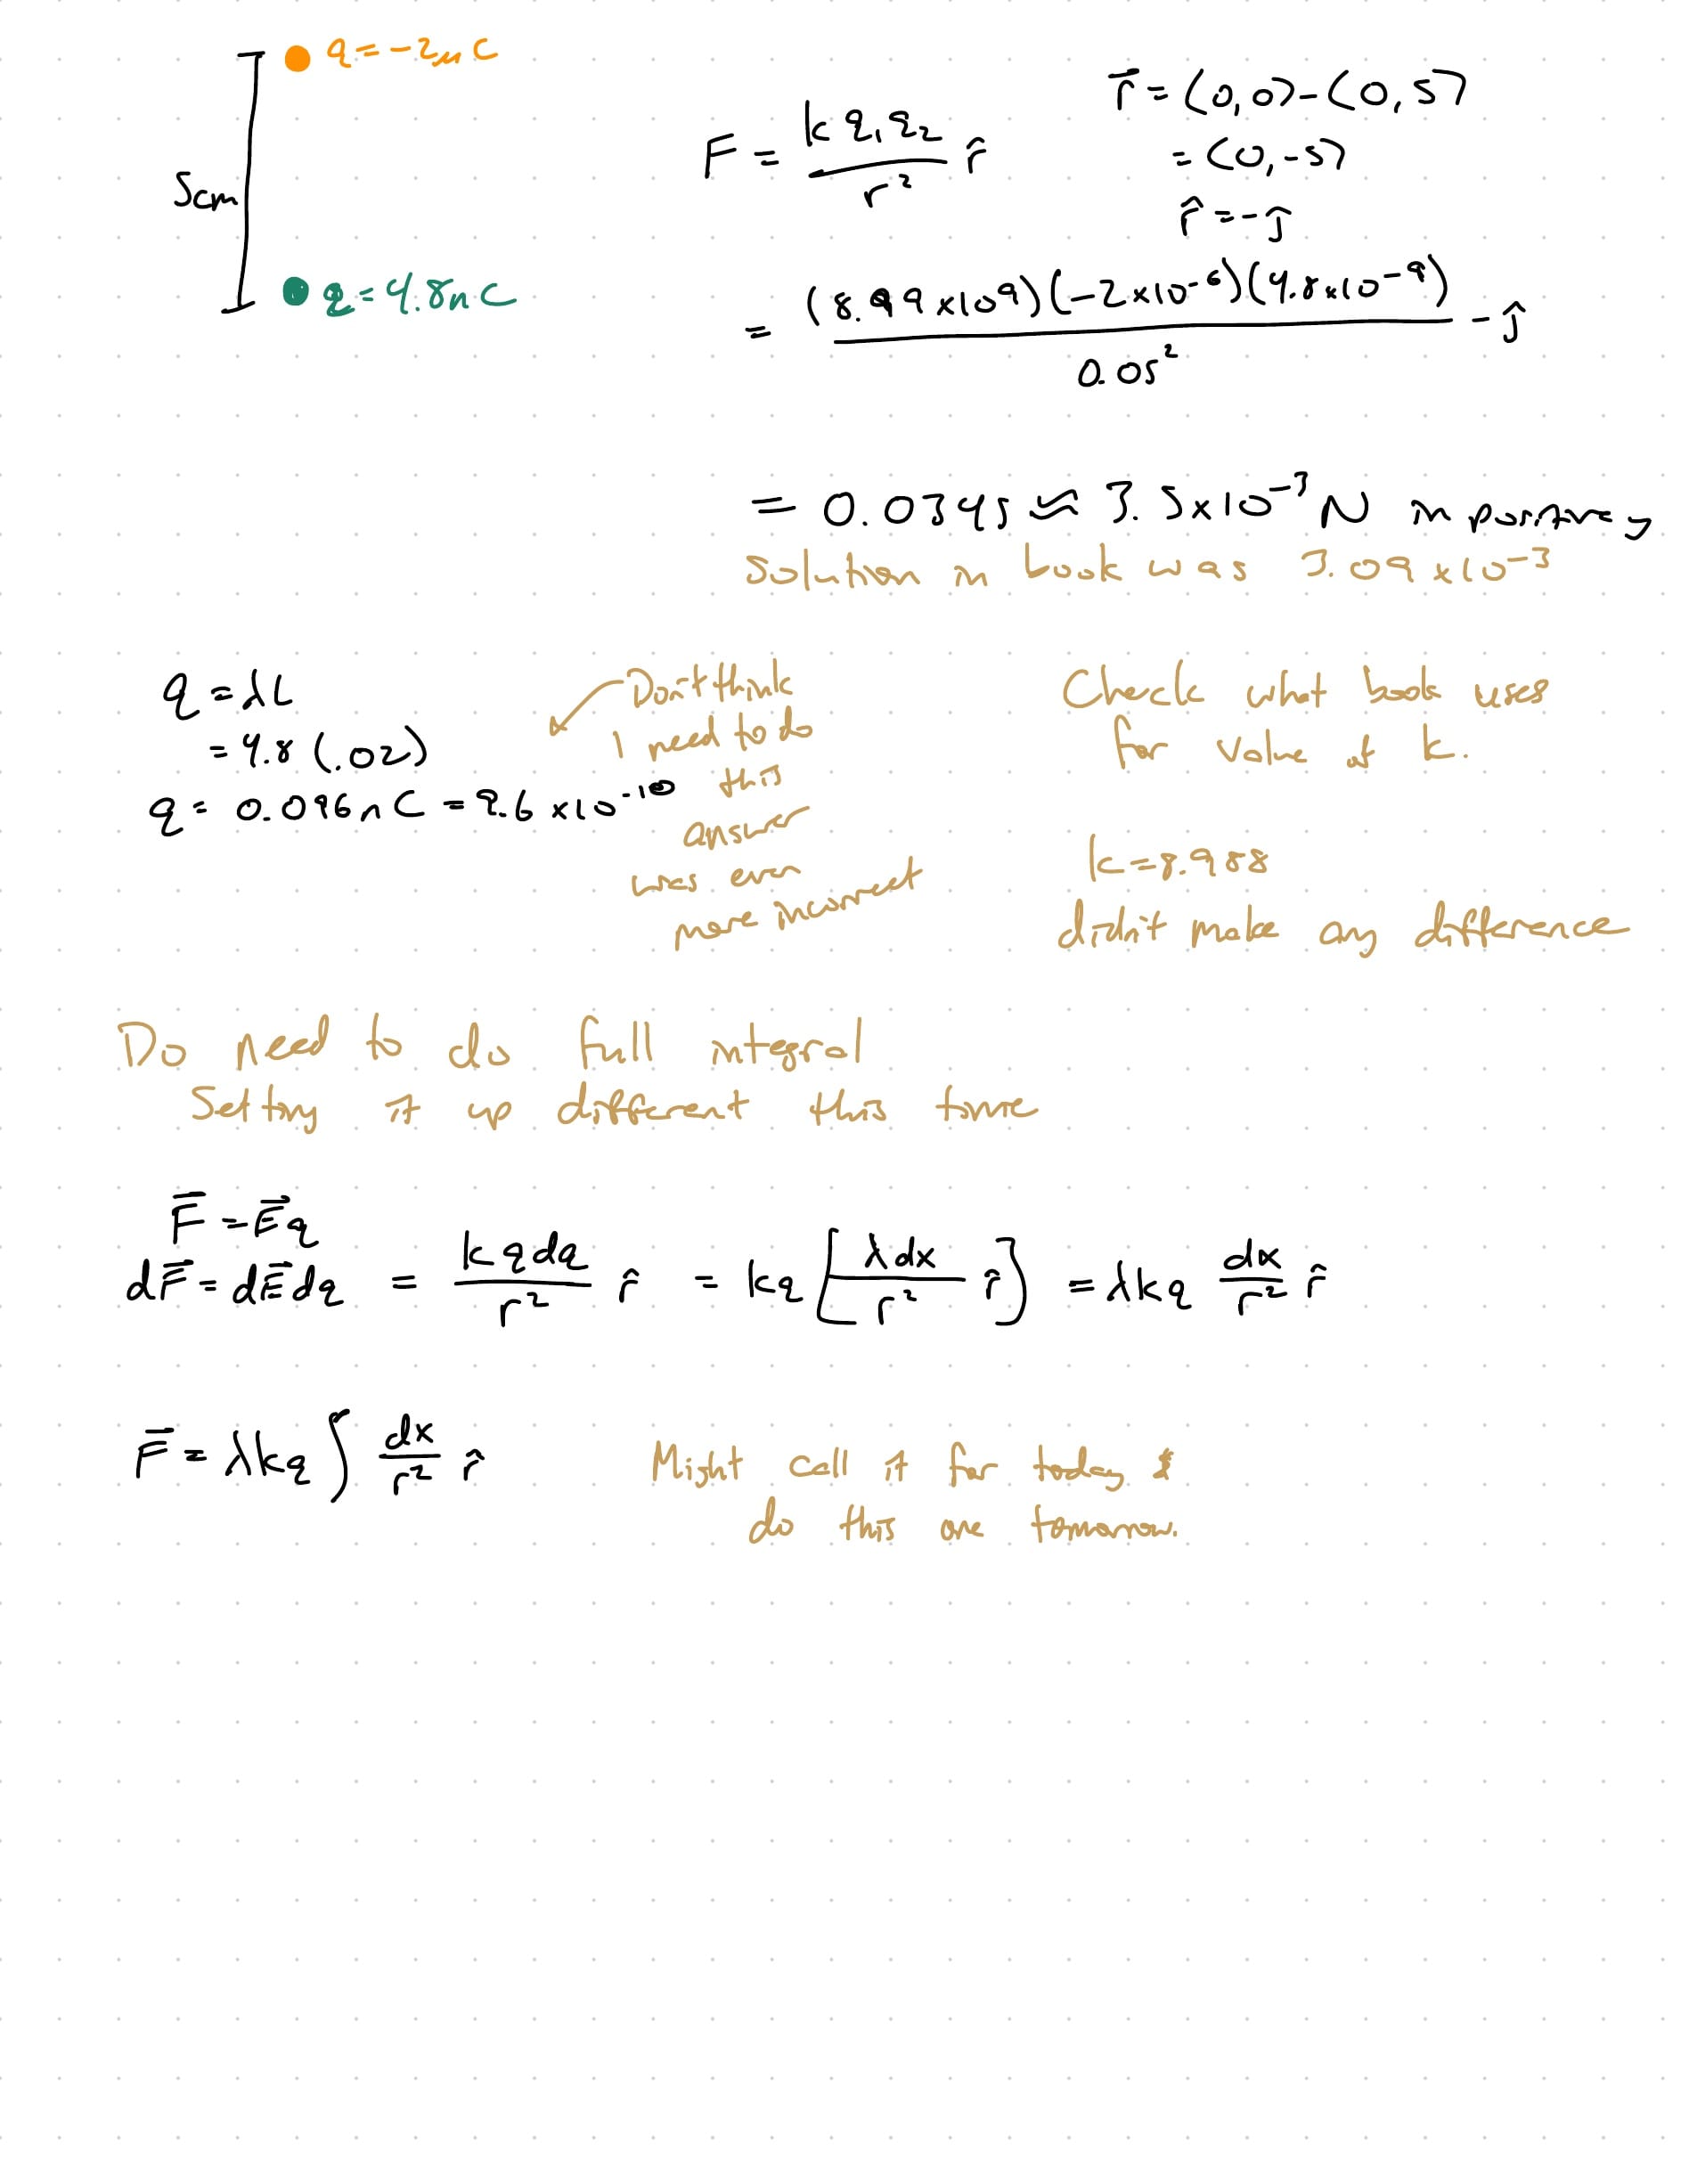 q=-2μC
5cm
q=4.8nC
F = kq₁q₂/r² r̂
r̄=(0,0)-(0,5)
=(0,-5)
r̂=-ĵ
= (8.99x10⁹)(-2x10⁻⁶)(4.8x10⁻⁹)/0.05² -ĵ
= 0.0345 ≈ 3.5x10⁻³ N in positive y
Solution in book was 3.09x10⁻³
q=λL
=4.8(.02)
q= 0.096nC = 9.6x10⁻¹⁰
Don't think
I need to do
this
answer
was even
more incorrect
Check what book uses
for value of k.
k=8.988
didn't make any difference
Do need to do full integral
Setting it up different this time
F̄=E⃗q
dF⃗=dE⃗dq = kqdq/r² r̂ = kq[λdx/r² r̂] = λkq dx/r² r̂
F̄= λkq∫ dx/r² r̂
Might call it for today &
do this one tomorrow.